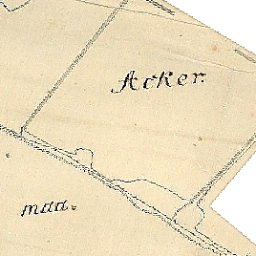 Acker.
maa.